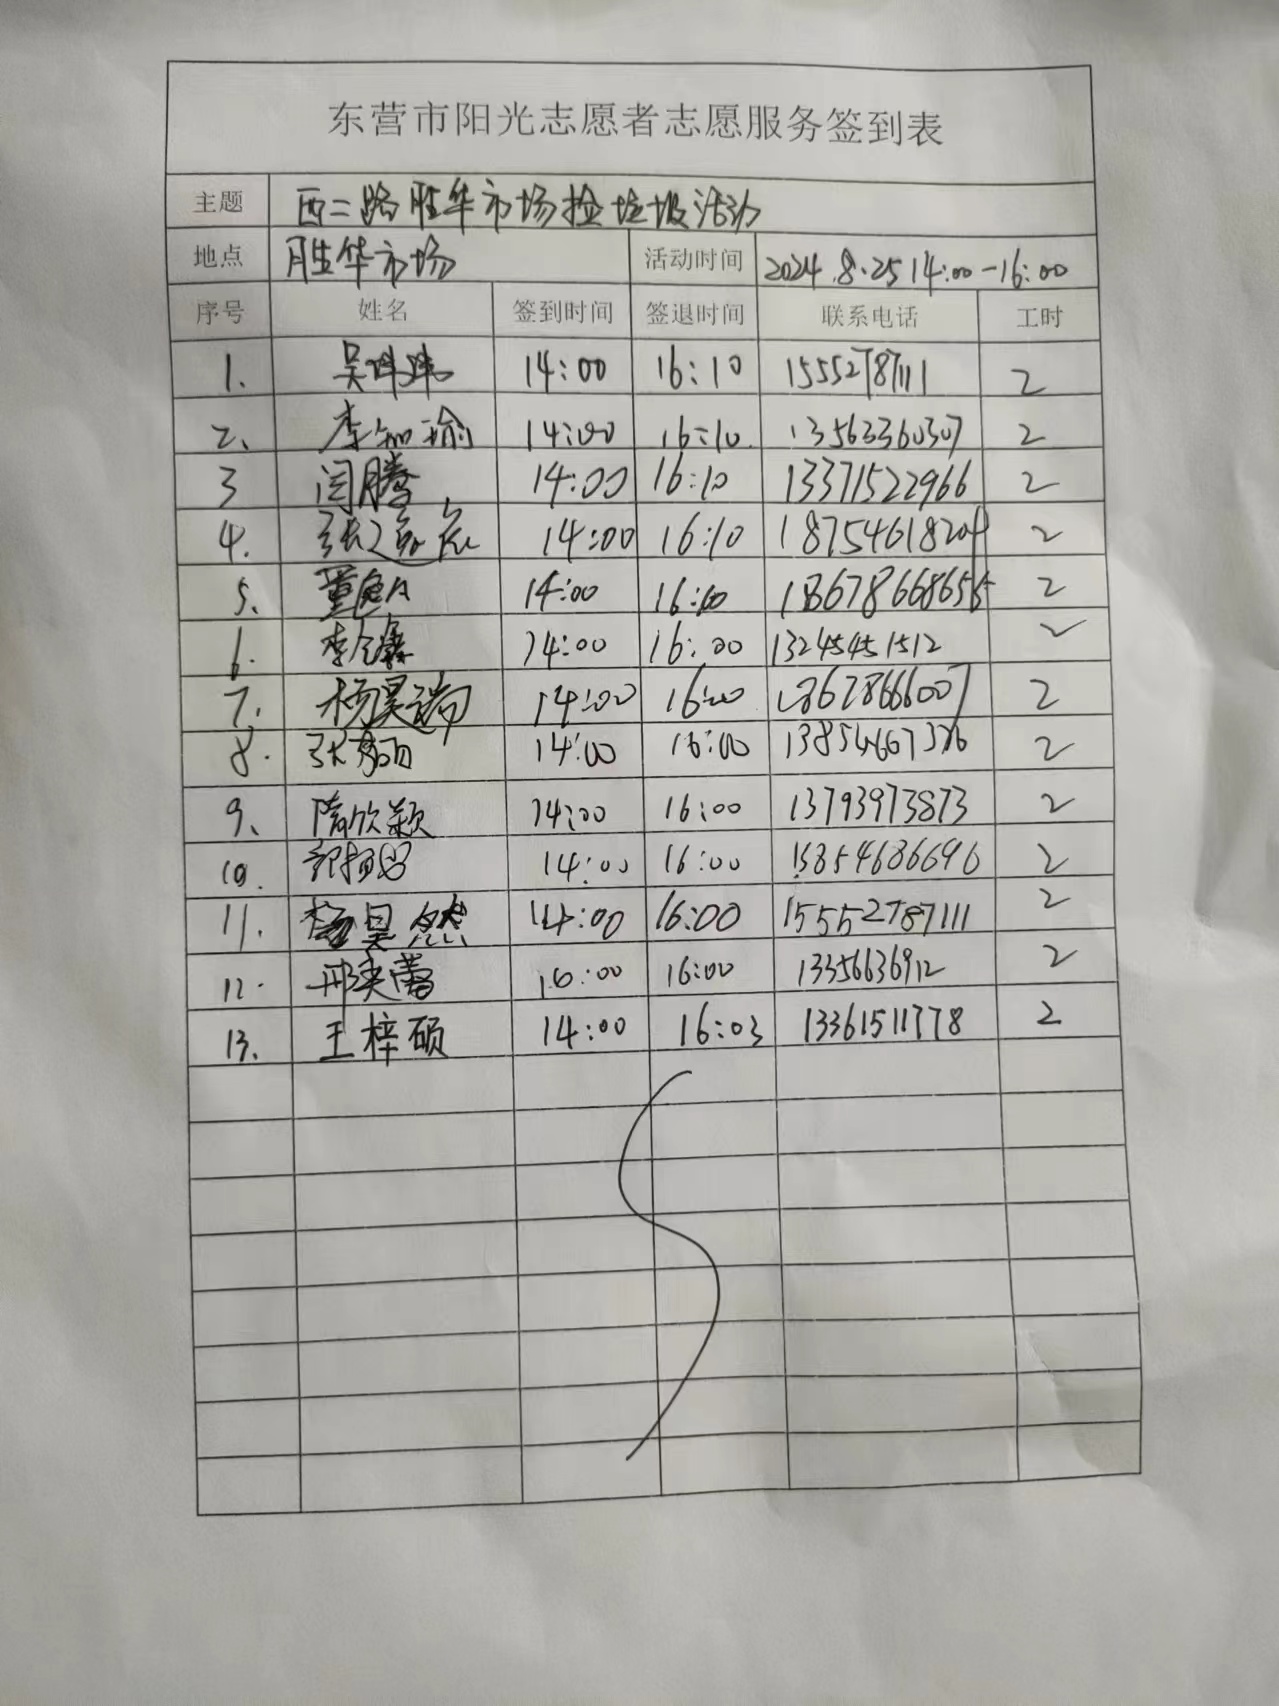 东营市阳光志愿者志愿服务签到表
主题 西二路胜华市场捡垃圾活动
地点 胜华市场 活动时间 2024.8.25 14:00-16:00
序号 姓名 签到时间 签退时间 联系电话 工时
1. 吴珠珠 14:00 16:10 15552787111 2
2、 李知瑜 14:00 16:10 13563360307 2
3 闫腾 14:00 16:10 13371522966 2
4. 14:00 16:10 18754618204 2
5、 14:00 16:00 2
6. 李鑫 14:00 16:00 13245451512 2
7. 杨昊瑞 14:00 16:00 18678666007 2
8. 14:00 16:00 2
9、 隋欣颖 14:00 16:00 13793973873 2
10. 14:00 16:00 15854686696 2
11. 杨昊然 14:00 16:00 15552787111 2
12. 邢奕蕾 16:00 16:00 13356636912 2
13. 王梓硕 14:00 16:03 13361511778 2